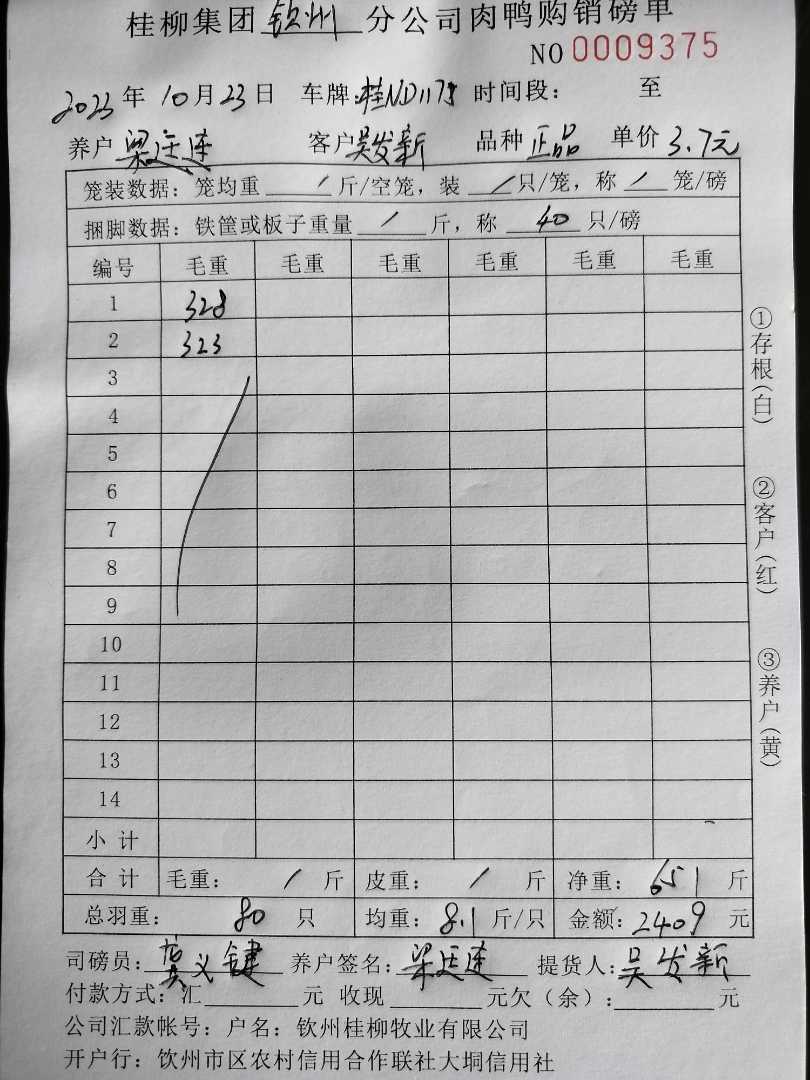 桂柳集团 钦州 分公司肉鸭购销磅单
NO 0009375
2023 年 10 月 23 日 车牌:桂ND1175 时间段: 至
养户 梁廷连 客户 吴发新 品种 正品 单价 3.7元
笼装数据: 笼均重 / 斤/空笼, 装 / 只/笼, 称 / 笼/磅
捆脚数据: 铁筐或板子重量 / 斤, 称 40 只/磅
编号 毛重 毛重 毛重 毛重 毛重 毛重
1 328
2 323
3
4
5
6
7
8
9
10
11
12
13
14
小计
合计 毛重: / 斤 皮重: / 斤 净重: 651 斤
总羽重: 80 只 均重: 8.1 斤/只 金额: 2409 元
司磅员: 义键 养户签名: 梁廷连 提货人: 吴发新
付款方式: 汇 元 收现 元欠(余): 元
公司汇款帐号: 户名: 钦州桂柳牧业有限公司
开户行: 钦州市区农村信用合作联社大垌信用社
①存根(白)
②客户(红)
③养户(黄)